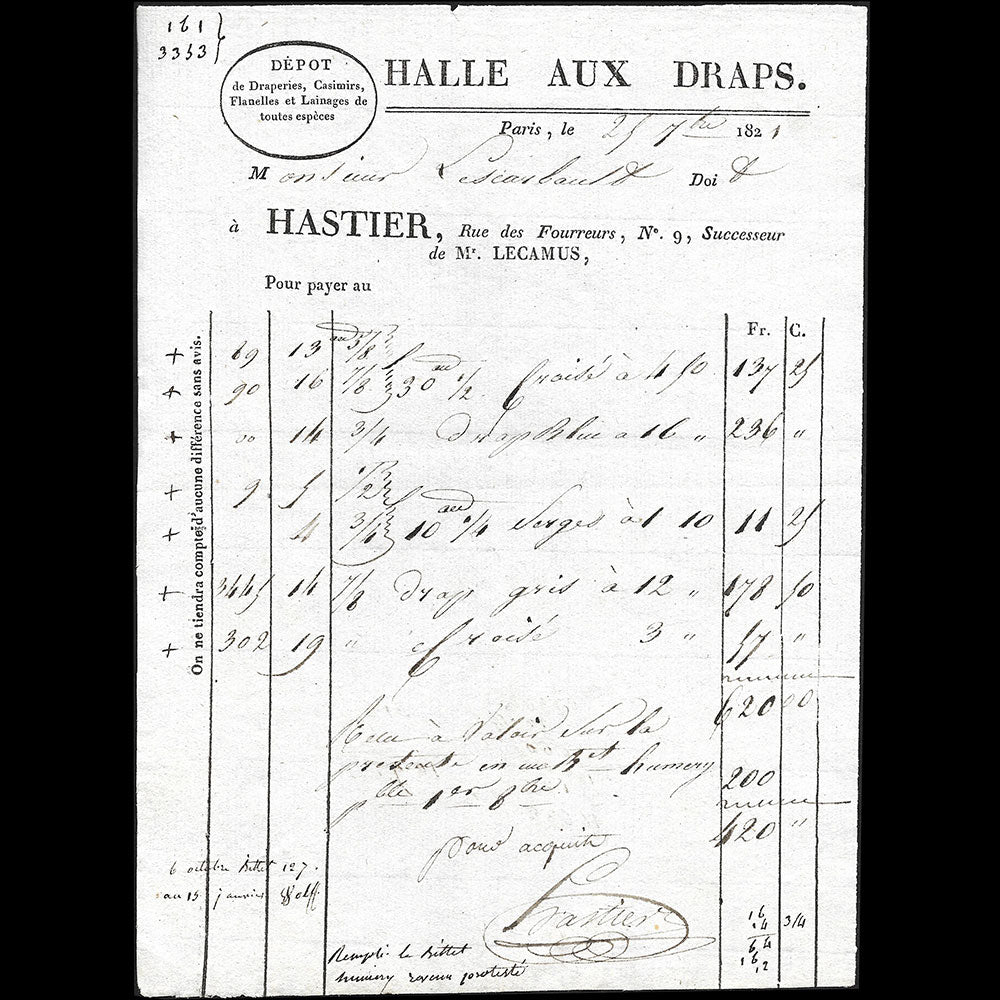 161
3353
DÉPOT
de Draperies, Casimirs,
Flanelles et Lainages de
toutes espèces
HALLE AUX DRAPS.
Paris, le 25 7bre 1821
Monsieur Lescarbault Doit
à HASTIER, Rue des Fourreurs, N°. 9, Successeur
de Mr. LECAMUS,
Pour payer au
On ne tiendra compte d'aucune différence sans avis.
Fr. C.
+ 69 13 au 5/8
+ 90 16 7/8 30 au 1/2 Croisé à 4 50 137 25
+ 14 3/4 drap Bleu à 16 " 236 "
+ 9 5 1/2
+ 4 3/4 10 au 1/4 Serges à 1 10 11 25
+ 3445 14 7/8 drap gris à 12 " 178 50
+ 302 19 " Croisé 3 " 57 "
620 00
Reçu à Valoir Sur la
présente en un Bet humery
ple 1er 8bre
200
420 "
pour acquit
Hastier
6 octobre Billet 127.
au 15 janvier Wolff.
Rempli le Billet
humery revenu protesté
16 3/4
14
64
16